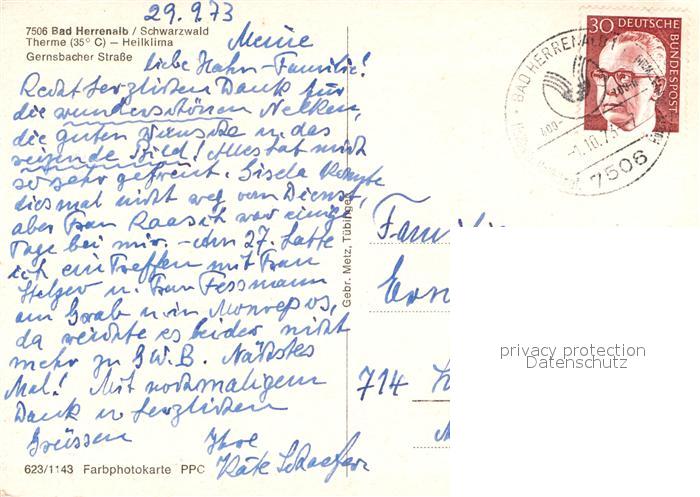 29.9.73
7506 Bad Herrenalb / Schwarzwald
Therme (35° C) – Heilklima
Gernsbacher Straße
Meine
liebe Hahn-Familie!
Recht herzlichen Dank für
die wunderschönen Nelken,
die guten Wünsche u. das
reizende Bild! Alles hat mich
so sehr gefreut. Gisela konnte
diesmal nicht weg vom Dienst,
aber Frau Raasch war einige
Tage bei mir. – Am 27. hatte
ich ein Treffen mit Frau
u. Frau Fessmann
am Grab u. in Monrepos,
da reichte es leider nicht
mehr zu G.W.B. Nächstes
Mal! Mit nochmaligem
Dank u. herzlichen
Grüssen Ihre
Käte Schaefer
623/1143 Farbphotokarte PPC
Gebr. Metz, Tübingen
BAD HERRENALB 1
-1.10.73
7506
30 DEUTSCHE BUNDESPOST
Familie
714
privacy protection
Datenschutz